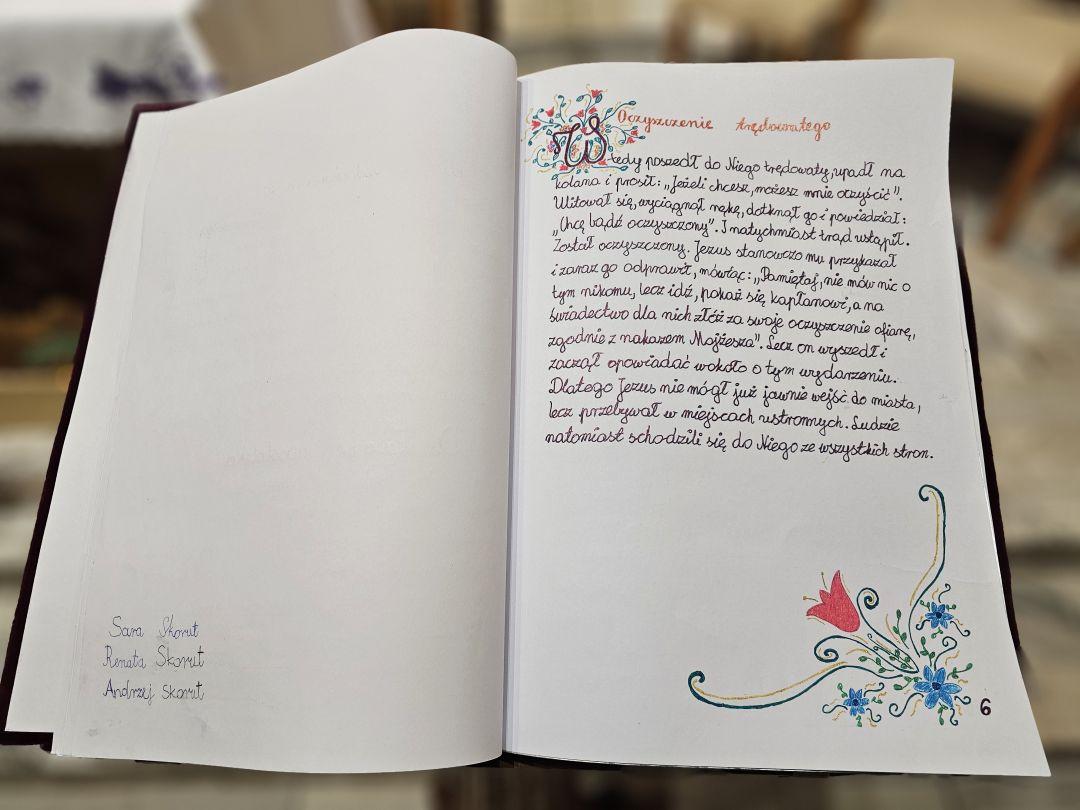 Sara Skorut
Renata Skorut
Andrzej Skorut
Oczyszczenie trędowatego
Wtedy poszedł do Niego trędowaty, upadł na
kolana i prosił: „Jeżeli chcesz, możesz mnie oczyścić".
Ulitował się, wyciągnął rękę, dotknął go i powiedział:
„Chcę bądź oczyszczony". I natychmiast trąd ustąpił.
Został oczyszczony. Jezus stanowczo mu przykazał
i zaraz go odprawił, mówiąc: „Pamiętaj, nie mów nic o
tym nikomu, lecz idź, pokaż się kapłanowi, a na
świadectwo dla nich złóż za swoje oczyszczenie ofiarę,
zgodnie z nakazem Mojżesza". Lecz on wyszedł i
zaczął opowiadać wokoło o tym wydarzeniu.
Dlatego Jezus nie mógł już jawnie wejść do miasta,
lecz przebywał w miejscach ustronnych. Ludzie
natomiast schodzili się do Niego ze wszystkich stron.
6